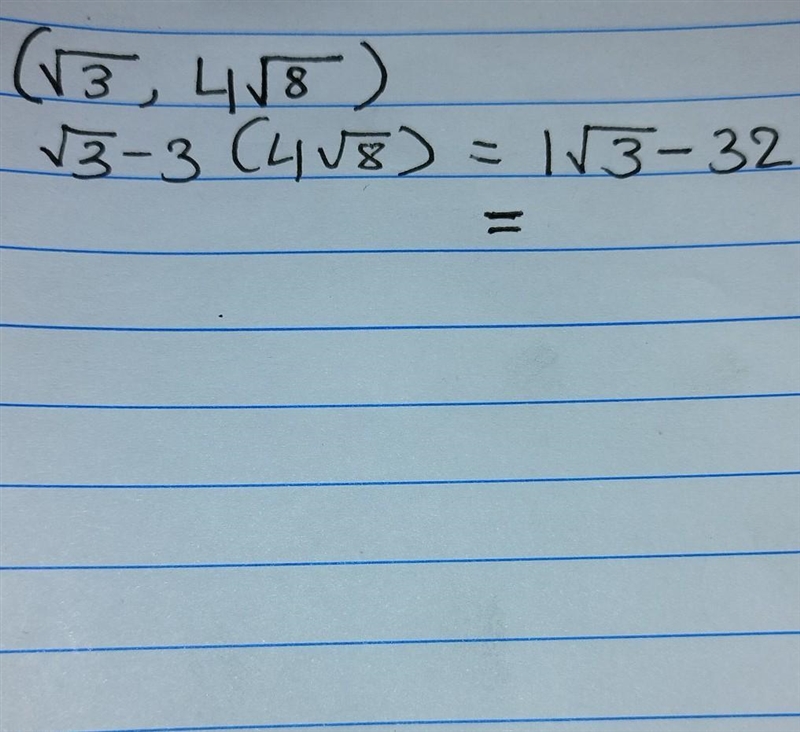 (√3, 4√8)
√3 - 3 (4√8) = 1√3 - 32
=